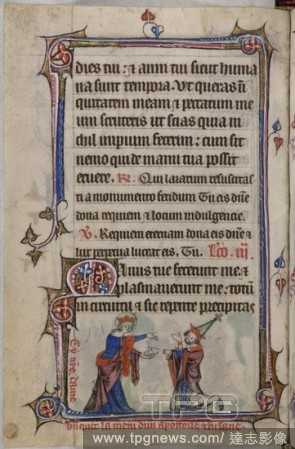 dies tui: et anni tui sicut huma
na sunt tempora. Ut queras ini
quitatem meam et peccatum me
um scruteris ut scias quia ni
chil impium fecerim: cum sit
nemo qui de manu tua possit
eruere. R. Qui lazarum resuscitas
ti a monumento fetidum Tu eis dñe
dona requiem et locum indulgencie.
V. Requiem eternam dona eis dñe et
lux perpetua luceat eis. Tu. Lco. iii.
Manus tue fecerunt me et
plasmauerunt me totũ
in circuitu et sic repente precipitas
TPG
www.tpgnews.com/達志影像